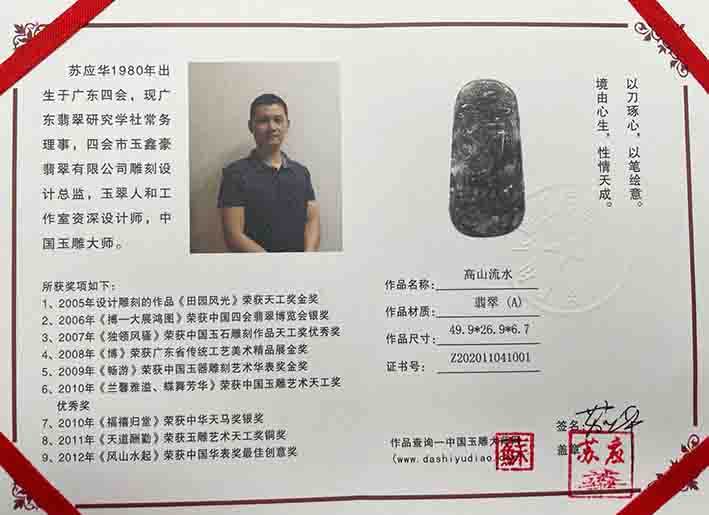 苏应华1980年出
生于广东四会，现广
东翡翠研究学社常务
理事，四会市玉鑫豪
翡翠有限公司雕刻设
计总监，玉翠人和工
作室资深设计师，中
国玉雕大师。
以刀琢心，以笔绘意。
境由心生，性情天成。
所获奖项如下：
1、2005年设计雕刻的作品《田园风光》荣获天工奖金奖
2、2006年《博一大展鸿图》荣获中国四会翡翠博览会银奖
3、2007年《独领风骚》荣获中国玉石雕刻作品天工奖优秀奖
4、2008年《博》荣获广东省传统工艺美术精品展金奖
5、2009年《畅游》荣获中国玉器雕刻艺术华表奖金奖
6、2010年《兰馨雅溢、蝶舞芳华》荣获中国玉雕艺术天工奖
优秀奖
7、2010年《福禧归堂》荣获中华天马奖银奖
8、2011年《天道酬勤》荣获玉雕艺术天工奖铜奖
9、2012年《风山水起》荣获中国华表奖最佳创意奖
作品名称： 高山流水
作品材质： 翡翠 (A)
作品尺寸： 49.9*26.9*6.7
证书号： Z202011041001
作品查询—中国玉雕大
(www.dashiyudiao.
蘇
签名
盖章
苏应